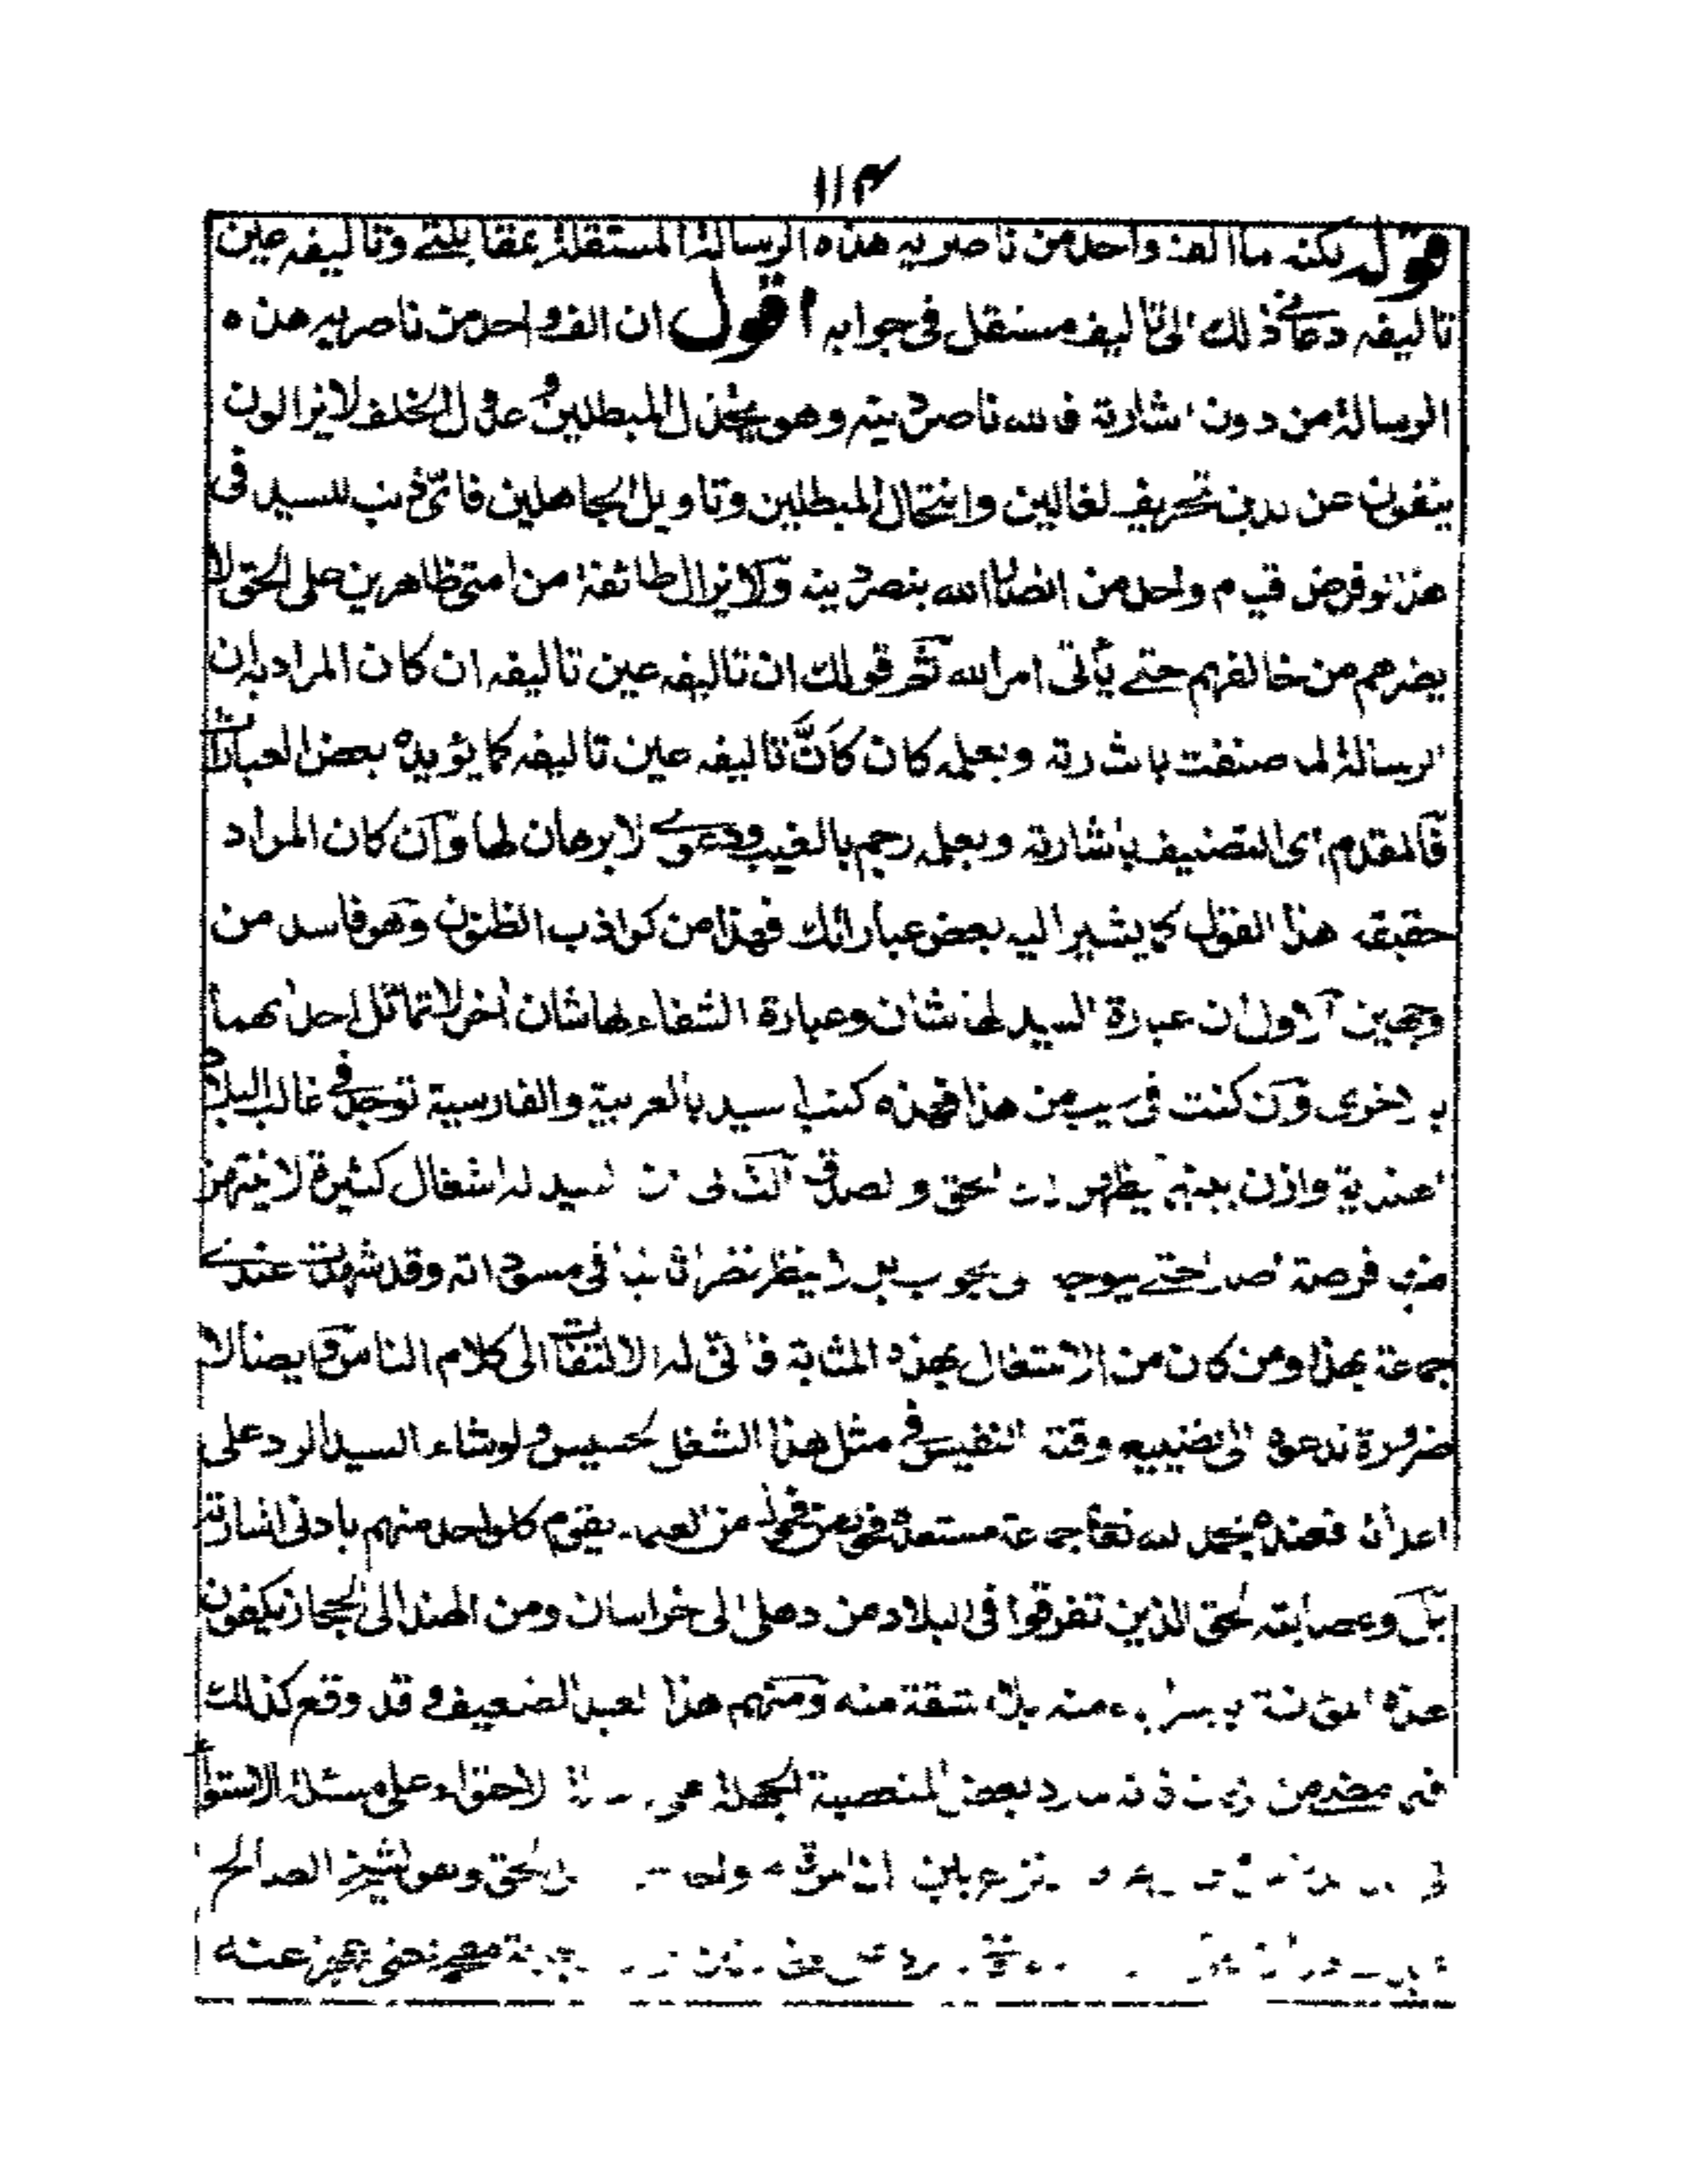 ١١٤
قوله لكنه ما الف واحد من ناصريه هذه الرسالة المستقلة بمقابلتي وتاليفه عين
تاليفه دعاني ذلك الى تاليف مستقل في جوابه اقول ان الف واحد من ناصريه هذه
الرسالة من دون اشارته فالله ناصر دينه وهو يخذل المبطلين وعدول الخلف لا يزالون
ينفون عن الدين تحريف الغالين وانتحال المبطلين وتاويل الجاهلين فاي ذنب للسيد في
هذا لو فرض قيام واحد من انصار الله بنصر دينه ولا يزال طائفة من امتي ظاهرين على الحق لا
يضرهم من خالفهم حتى يأتي امر الله ثم قولك ان تاليفه عين تاليفه ان كان المراد به ان
الرسالة لما صنفت باشارته وبعلمه كان كأنَّ تاليفه عين تاليفه كما يؤيده بعض العبارات
فالمقدم اى التصنيف باشارته وبعلمه رجم بالغيب ودعوى لا برهان لها وان كان المراد
حقيقة هذا القول كما يشير اليه بعض عباراتك فهذا من كواذب الظنون وهو فاسد من
وجهين الاول ان عبارة السيد لها شان وعبارة الشفاء لها شان اخر لا تماثل احداهما
بالاخرى وان كنت في ريب من هذا فهذه كتب السيد بالعربية والفارسية توجد في غالب البلاد
الهندية وازن بينهما يظهر لك الحق والصدق الثاني ان السيد له اشغال كثيرة لا ينتهز
منها فرصة اصلا حتى يتوجه الى الجواب بل لا ينظر نظرا ثانيا في مسوداته وقد شهدت عندي
جماعة بهذا ومن كان من الاشتغال بهذه المثابة فانى له الالتفات الى كلام الناس وايضا لا
ضرورة تدعوه الى تضييع وقته النفيس في مثل هذا الشغل الخسيس ولو شاء السيد الرد على
اعدائه فعنده بحمد الله تعالى جماعة مستعدة من العلماء يقوم كل واحد منهم بادنى اشارته
بل وعصابته الحق الذين تفرقوا في البلاد من دهلى الى خراسان ومن الهند الى الحجاز يكفون
هذه المؤنة منه بلا مشقة منه ومنهم هذا العبد الضعيف وقد وقع كذلك
فيما مضى من الزمان رد بعض المتعصبة الجهلة على الاحتواء على مسئلة الاستواء
الحق وهو الشيخ الصالح
عنه